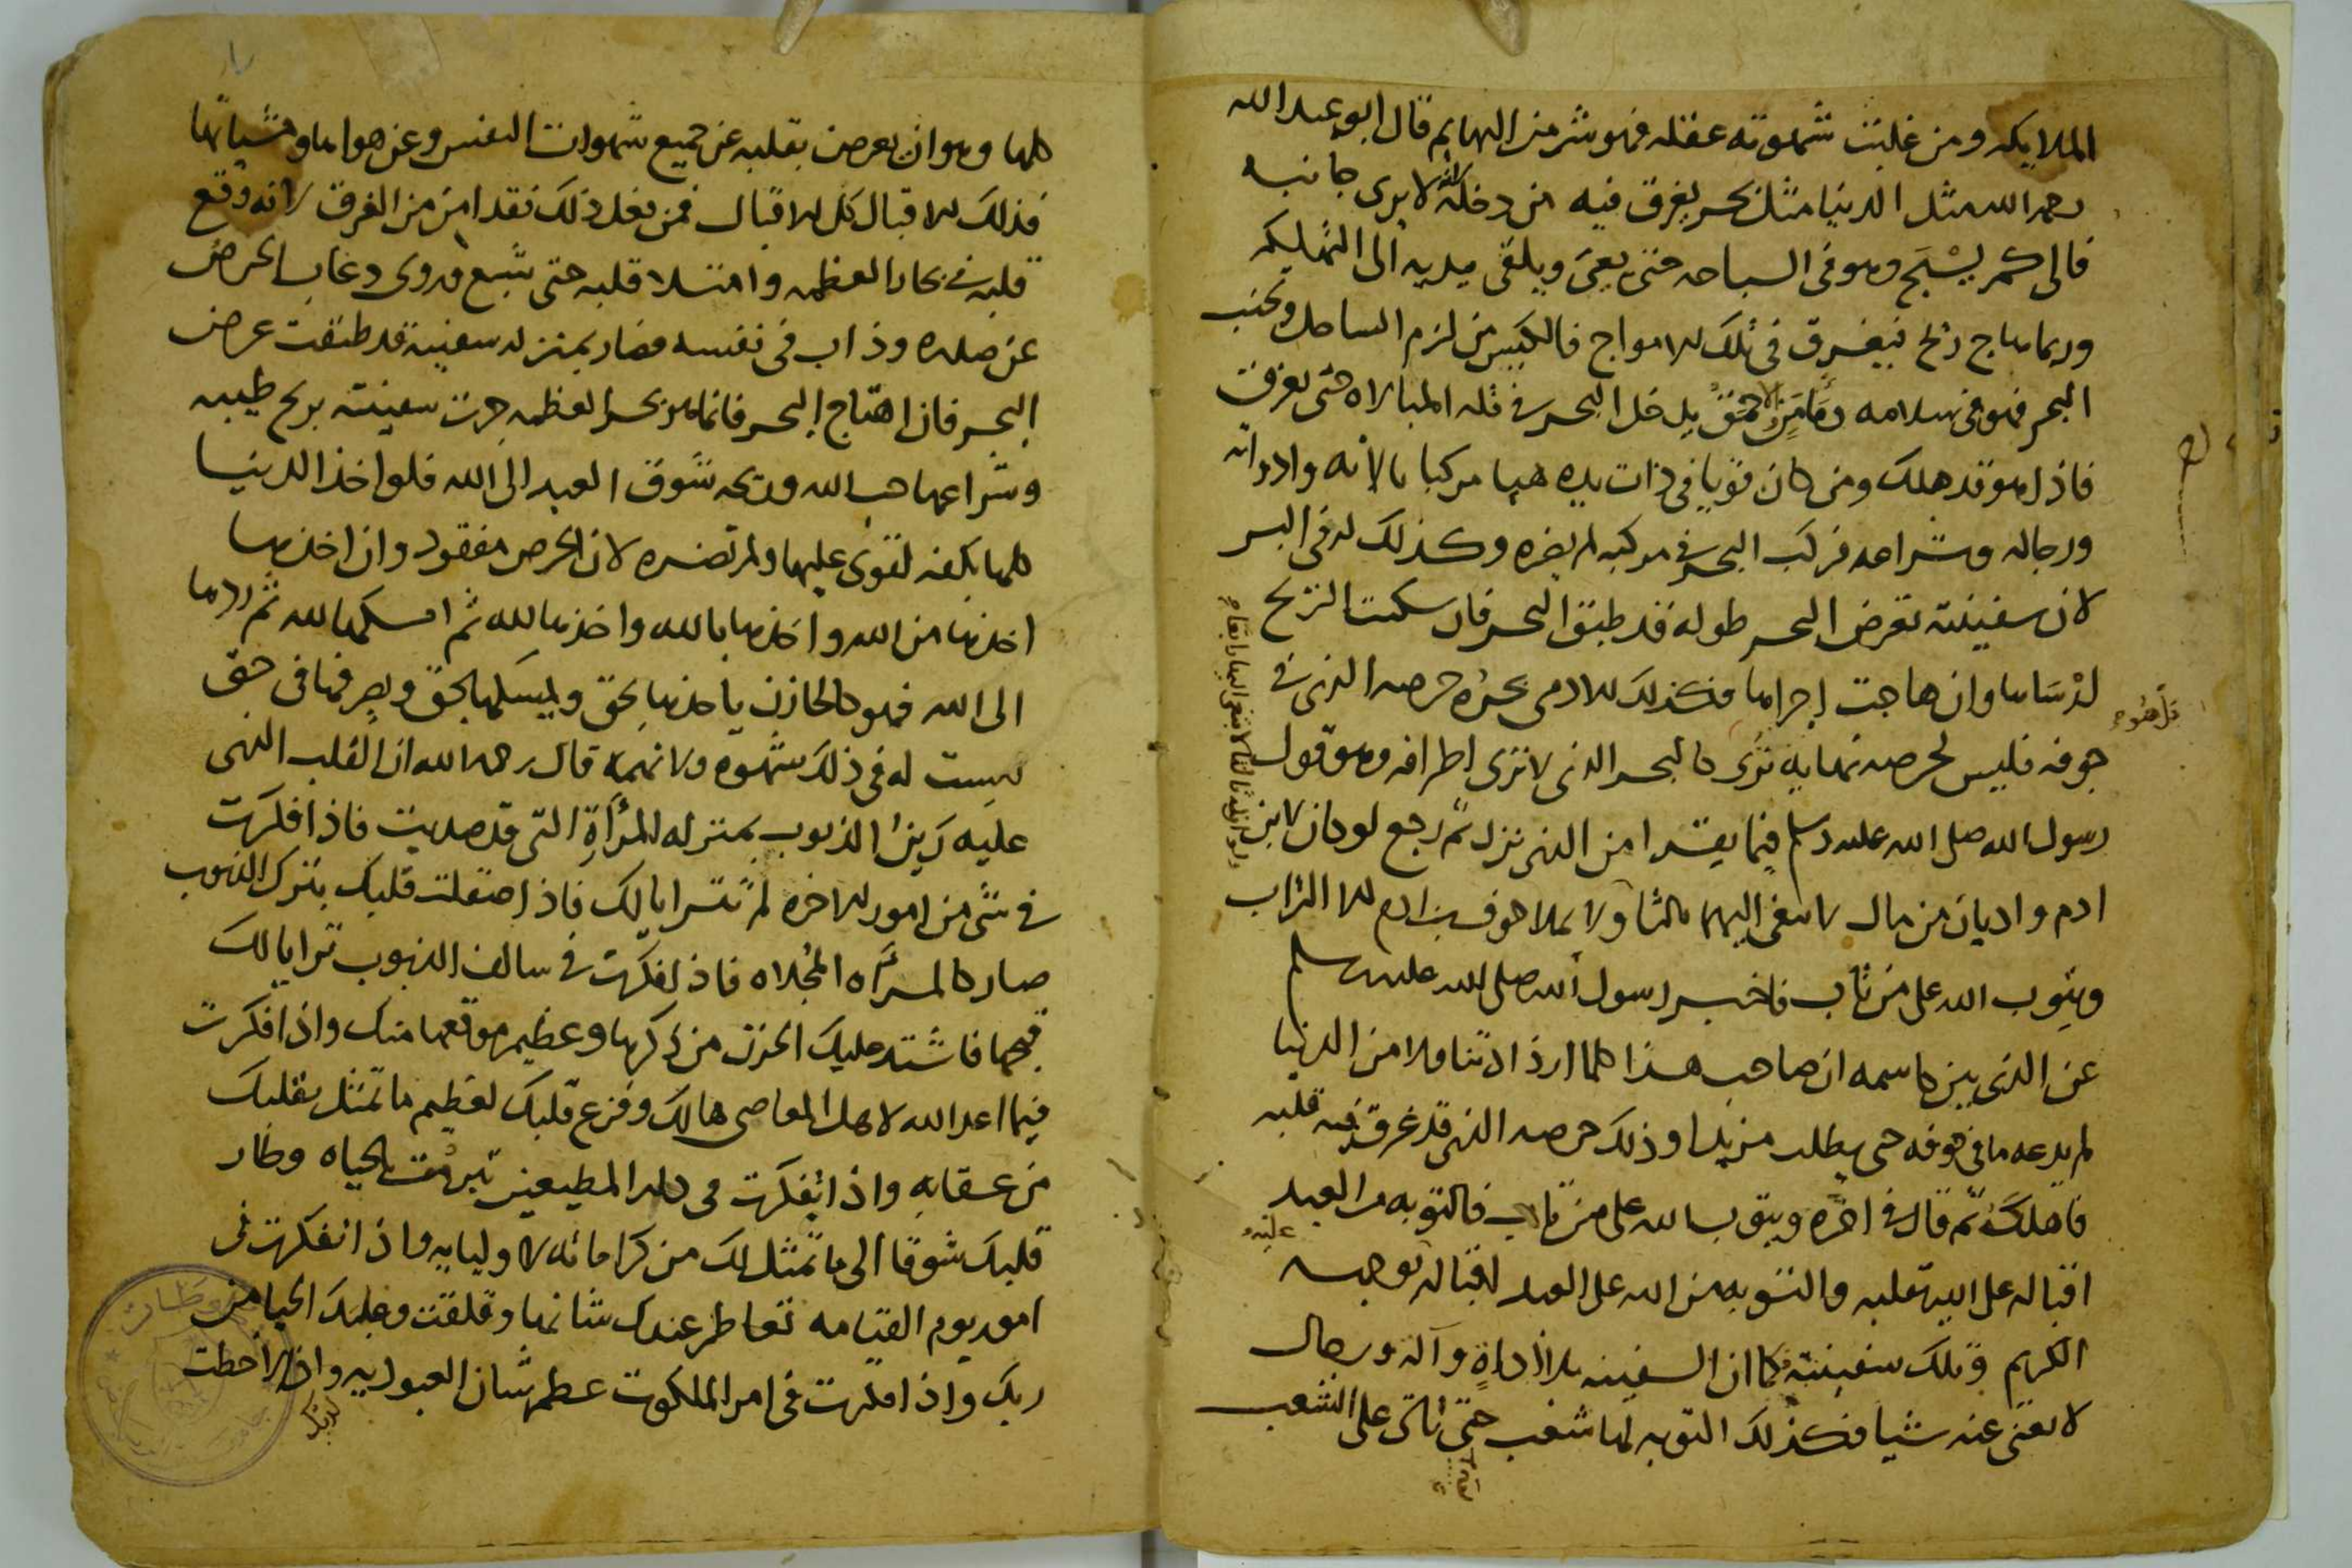 الملايكه ومن غلبت شهوته عقله فهو شر من البهايم قال ابو عبد الله
رحمه الله مثل الدنيا مثل بحر يغرق فيه من دخله لانه لا يرى جانبه
فالى كم يسبح وهو فى السباحه حتى يعيى ويلقى بيديه الى التهلكه
وربما هاج ريح فيغرق فى تلك الامواج فالكيس من لزم الساحل وتجنب
البحر فهو فى سلامه ومن الاحمق يدخل البحر فى قله المبالاه حتى يغرق
فاذا هو قد هلك ومن كان قويا فى ذات يده هيا مركبا بالاته وادواته
ورجاله وشراعه فركب البحر فى مركبه لم يضره وكذلك له فى البر
لان سفينته تعرض البحر طوله قد طبق البحر فان سكنت الريح
لرساها وان هاجت اجراها فكذلك الادمى بحره حرصه الذى فى
جوفه فليس لحرصه نهايه ترى كالبحر الذى لا ترى اطرافه وهو قول
رسول الله صلى الله عليه وسلم فيما يقرا من الذى نزل ثم رجع لو كان لابن
ادم واديان من مال لابتغى اليهما ثالثا ولا يملا جوف ابن ادم الا التراب
ويتوب الله على من تاب فاخبر رسول الله صلى الله عليه وسلم
عن الذى بين جاسمه ان صاحب هذا كلما ازداد تناولا من الدنيا
لم يدعه ما فى جوفه حتى يطلب مزيدا وذلك حرصه الذى قد غرق فيه قلبه
فاهلكه ثم قال فى اخره ويتوب الله على من تاب فالتوبه من العبد
اقباله على الله بقلبه والتوبه من الله على العبد اقباله بوجهه
عليه
الكريم وتلك سفينته فكما ان السفينه بلا اداة وآلة ورجال
لا يغنى عنه شيا فكذلك التوبه لها شعب حتى تاتى على الشعب
كلها وهو ان يعرض بقلبه عن جميع شهوات النفس وعن هواها ومشياتها
فذلك الاقبال كل الاقبال فمن فعل ذلك فقد امن من الغرق لانه وقع
قلبه فى بحار العظمه وامتلا قلبه حتى شبع وروى وغاب الحرص
عن صدره وذاب فى نفسه فصار بمنزله سفينه قد طبقت عرض
البحر فان اهتاج البحر فانما هو بحر العظمه جرت سفينته بريح طيبه
وشراعها حب الله وريحه شوق العبد الى الله فلو اخذ الدنيا
كلها بكفه لقوى عليها ولم تضره لان الحرص مفقود وان اخذها
اخذها من الله واخذها بالله واخذها لله ثم امسكها لله ثم ردها
الى الله فهو كالخازن ياخذها بحق ويمسكها بحق ويصرفها فى حق
ليست له فى ذلك شهوه ولا نهمه قال رحمه الله ان القلب الذى
عليه رين الذنوب بمنزله المرآة التى قد صديت فاذا فكرت
فى شى من امور الاخره لم تترايا لك فاذا صقلت قلبك بترك الذنوب
صار كالمرآه المجلاه فاذا فكرت فى سالف الذنوب ترايا لك
قبحها فاشتد عليك الحزن من ذكرها وعظيم موقعها منك واذا فكرت
فيما اعد الله لاهل المعاصى هالك وفزع قلبك لعظيم ما تمثل بقلبك
من عقابه واذا تفكرت فى دار المطيعين تبرمت بالحياه وطار
قلبك شوقا الى ما تمثل لك من كراماته لاوليايه واذا تفكرت فى
امور يوم القيامه تعاظم عندك شانها وقلقت وعليك الحيا من
ربك واذا فكرت فى امر الملكوت عظم شان العبوديه واذا لاحظت